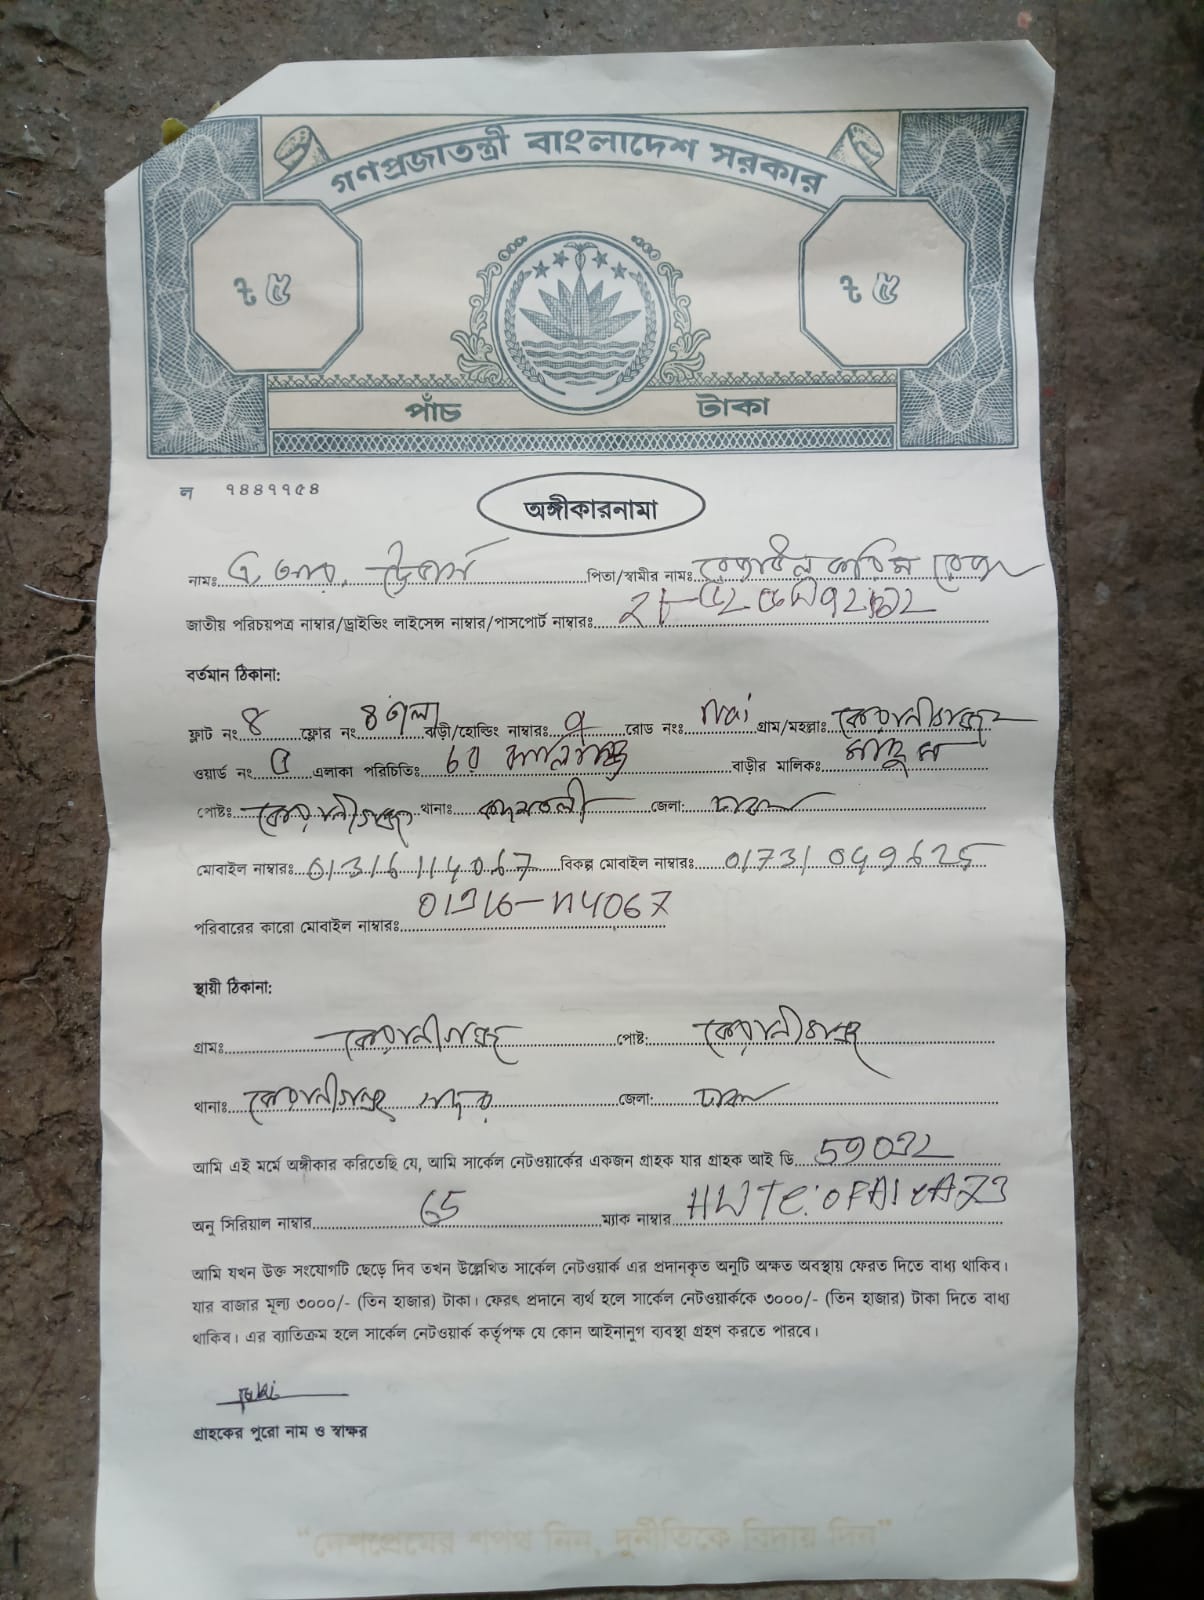 গণপ্রজাতন্ত্রী বাংলাদেশ সরকার
৳ ৫ ৳ ৫
পাঁচ টাকা
ল ৭৪৪৭৭৫৪
অঙ্গীকারনামা
নামঃ এ, আর, ট্রেডার্স পিতা/স্বামীর নামঃ রেজাউল করিম রেজা
জাতীয় পরিচয়পত্র নাম্বার/ড্রাইভিং লাইসেন্স নাম্বার/পাসপোর্ট নাম্বারঃ
বর্তমান ঠিকানা:
ফ্লাট নং ৪ ফ্লোর নং ৪ তলা বাড়ী/হোল্ডিং নাম্বারঃ রোড নংঃ গ্রাম/মহল্লাঃ কেরানীগঞ্জ
ওয়ার্ড নং এলাকা পরিচিতিঃ চর কালিগঞ্জ বাড়ীর মালিকঃ মাসুম
পোষ্টঃ কেরানীগঞ্জ থানাঃ কদমতলী জেলা: ঢাকা
মোবাইল নাম্বারঃ 01316114067 বিকল্প মোবাইল নাম্বারঃ 01731049625
পরিবারের কারো মোবাইল নাম্বারঃ 01316-114067
স্থায়ী ঠিকানা:
গ্রামঃ কেরানীগঞ্জ পোষ্ট: কেরানীগঞ্জ
থানাঃ কেরানীগঞ্জ সদর জেলা: ঢাকা
আমি এই মর্মে অঙ্গীকার করিতেছি যে, আমি সার্কেল নেটওয়ার্কের একজন গ্রাহক যার গ্রাহক আই ডি
অনু সিরিয়াল নাম্বার 65 ম্যাক নাম্বার
আমি যখন উক্ত সংযোগটি ছেড়ে দিব তখন উল্লেখিত সার্কেল নেটওয়ার্ক এর প্রদানকৃত অনুটি অক্ষত অবস্থায় ফেরত দিতে বাধ্য থাকিব।
যার বাজার মূল্য ৩০০০/- (তিন হাজার) টাকা। ফেরৎ প্রদানে ব্যর্থ হলে সার্কেল নেটওয়ার্ককে ৩০০০/- (তিন হাজার) টাকা দিতে বাধ্য
থাকিব। এর ব্যাতিক্রম হলে সার্কেল নেটওয়ার্ক কর্তৃপক্ষ যে কোন আইনানুগ ব্যবস্থা গ্রহণ করতে পারবে।
গ্রাহকের পুরো নাম ও স্বাক্ষর
“দেশপ্রেমের শপথ নিন, দুর্নীতিকে বিদায় দিন”